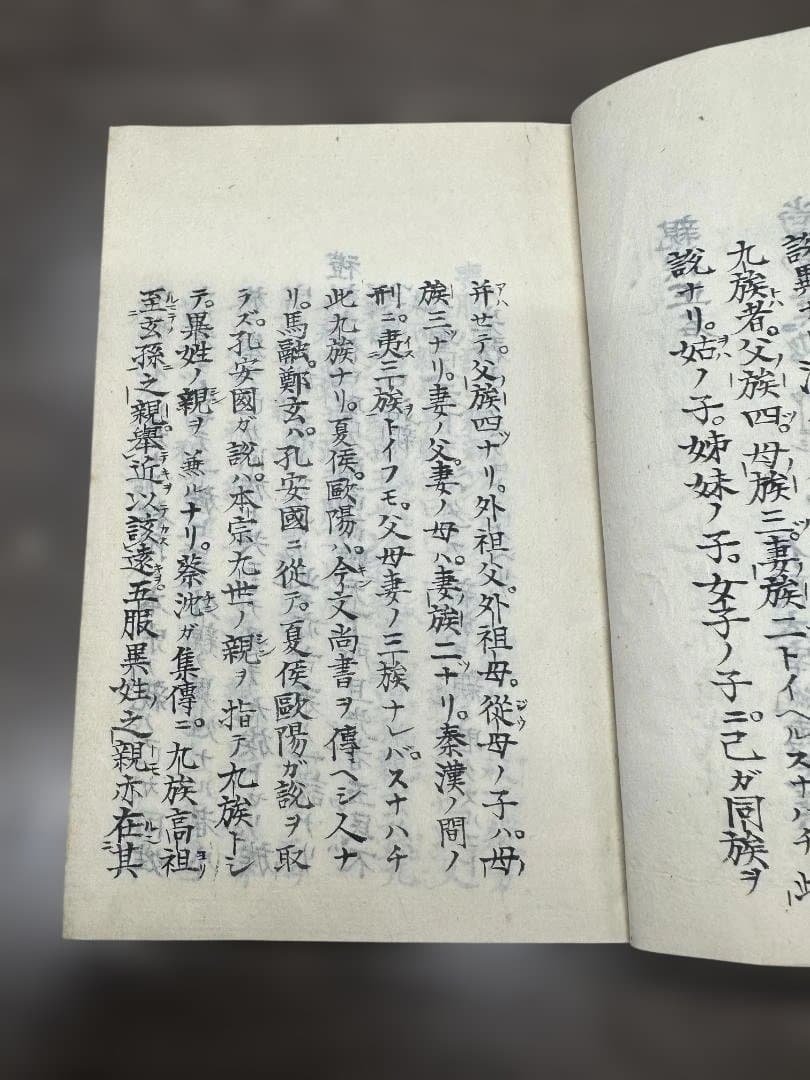 九族者。父族四。母族三。妻族二。トイヘルスナハチ此
說ナリ。姑ノ子。姊妹ノ子。女子ノ子ニ。己ガ同族ヲ
并セテ。父族四ナリ。外祖父。外祖母。從母ノ子ハ。母
族三ナリ。妻ノ父。妻ノ母ハ。妻族二ナリ。秦漢ノ間ノ
刑ニ。夷三族トイフモ。父母妻ノ三族ナレバ。スナハチ
此九族ナリ。夏侯。歐陽ハ。今文尚書ヲ傳ヘシ人ナ
リ。馬融。鄭玄ハ。孔安國ニ從テ。夏侯歐陽ガ說ヲ取
ラズ。孔安國ガ說ハ。本宗九世ノ親ヲ指テ九族トシ
テ。異姓ノ親ヲ兼ルナリ。蔡沈ガ集傳ニ。九族高祖
至玄孫之親。舉近以該遠。五服異姓之親亦在其